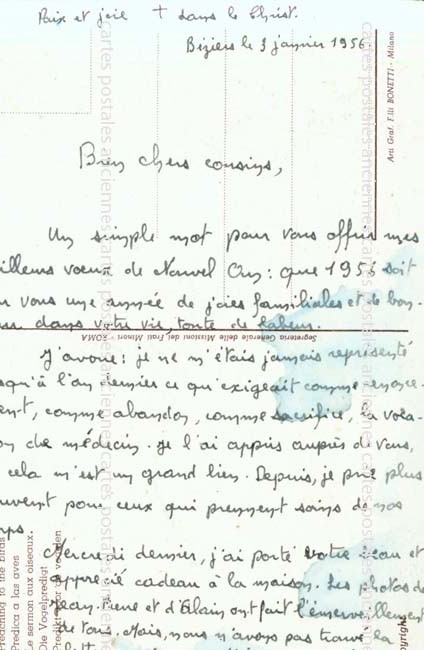 Paix et joie + dans le Christ.
Béziers le 3 janvier 1956.
Bien chers cousins,
Un simple mot pour vous offrir mes
illeurs voeux de Nouvel An: que 1956 soit
vous une année de joies familiales et de bon-
dans votre vie, toute de labeur.
J'avoue: je ne m'étais jamais représenté
squ'à l'an dernier ce qu'exigeait comme renonce-
ent, comme abandon, comme sacrifice, la voca-
on de médecin. Je l'ai appris auprès de vous,
cela m'est un grand bien. Depuis, je prie plus
uvent pour ceux qui prennent soins de nos
rps.
Mercredi dernier, j'ai porté votre beau et
apprécié cadeau à la maison. Les photos de
Jean-Pierre et d'Alain ont fait l'émerveillement
de tous. Mais, nous n'avons pas trouvé la
Arti Graf. F.lli BONETTI - Milano
Segreteria Generale delle Missioni dei Frati Minori - ROMA
Preaching to the birds
Predica a las aves
Le sermon aux oiseaux.
Die Vogelpredigt
cartes postales anciennes
cartes postales anciennes
cartes postales anciennes
opyright